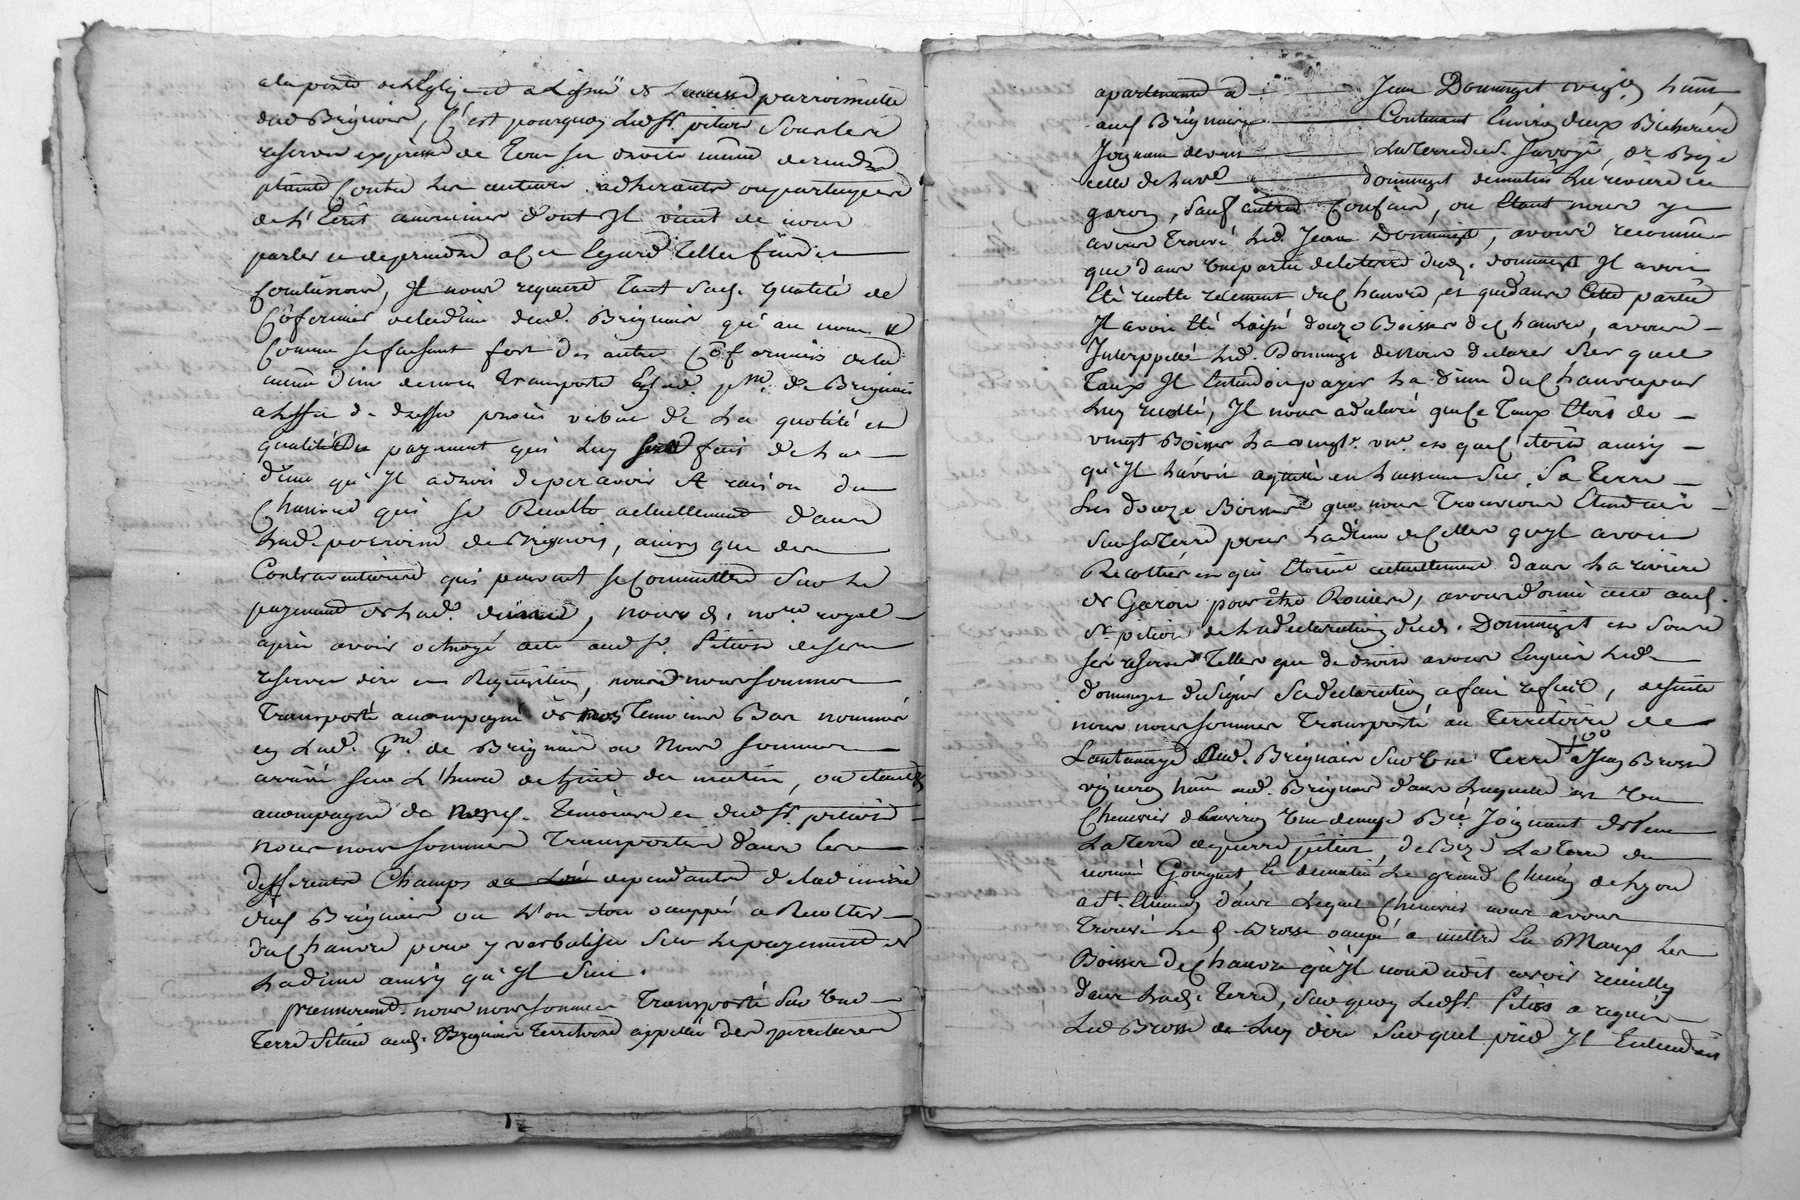 a la porte de l'Eglise et a l'issüe de la messe parroissialle
dud Brignais, C'est pourquoy led sr. pitiot sous les
reserves expresses de tous ses droits même de rendre
plainte Contre les auteurs adherants ou partageurs
de l'Ecrit anonime d'ont Il vient de nous
parler et de prendre a cet Egard telles fins et
Conclusions, Il nous requiert tant dad. qualité de
Cofermier de lad dime dud. Brignais qu'au nom et
Comme se faisant fort des autres Cofermiers de lad
même dime de nous transporter Esd. pnes. de Brignais
a l'effet de dresser procès verbal de la quotité et
qualité du payement qui luy sera fait de la
dime qu'Il a droit de percevoir A raison du
Chanvre qui se Recolte actuellement dans
lad. parroisse de Brignais, ainsy que des
Contraventions qui peuvent se Committre sur le
payement de lad. dime, nous d. nore. royal
après avoir octroyé acte aud sr. Pitiot de ses
reserves dire et Requisition, nous nous sommes
transporté acompagné de nos temoins Bas nommés
en lad. pne. de Brignais ou Nous sommes
arrivé sur l'heure de huit du matin, ou etants
acompagné de nosd. temoins et dud sr. pitiot
nous nous sommes transportés dans les
differents Champs dependants de lad dimerie
dud Brignais ou l'on etoit occuppé a Recolter
du Chanvre pour y verbaliser sur le payement de
la dime ainsy qu'Il suit.
premierement nous nous sommes transporté sur une
terre située aud. Brignais territoire appellé des pirelleres
apartenant a Jean Dominget vigon. habt.
aud Brignais Contenant Environ deux Bicherées
Joignant de vent la terre du s. Javogé, de Bize
celle de lavl dominget de matin la riviere de
garon, sauf autres Confins, ou Etant nous y
avons trouvé led. Jean Dominget, avons reconnu
que dans une partie de la terre dud. dominget Il avoit
Eté recolté recement du Chanvre, et que dans Cette partie
Il avoit Eté laissé douze Boisses de Chanvre, avons
Interppellé led. Dominget de nous declarer sur quel
taux Il Entendoit payer la dime du Chanvre par
luy recolté, Il nous a declaré que le taux Etoit de
vingt Boisses la vingt. une et que C'etoit ainsy
qu'Il l'avoit aquitté en laissant sur sa terre
les douze Boisses que nous trouvions Etendües
sur sa terre pour la dime de Celles qu'Il avoit
Recoltées et qui Etoient actuellement dans la riviere
de Garon pour être Rouies, avons donné acte aud.
sr. pitiot de la declaration dud. Dominget et sous
ses reserves telles que de droit avons Enquis led.
dominget de signer sa declaration a fait refus, de suite
nous nous sommes transporté au territoire de
Lantanaye dud. Brignais sur une terre a Jean Brosse
vigneron habt. aud. Brignais dans laquelle est un
Chenevier d'Environ une demye Bée. Joignant de vent
la terre de pierre pitiot, de Bize la terre du
nommé Gouguet, le de matin le grand Chemin de Lyon
a St. Etienne, dans lequel Chenevier nous avons
trouvé le d. Brosse occupé a mettre En Maux les
Boisses de Chanvre qu'Il nous a dit avoir recuilly
dans lad. terre, sur quoy led sr. Pitiot a requis
led Brosse de luy dire sur quel pied Il Entendoit